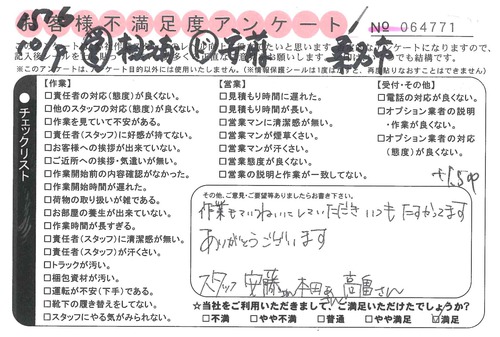 お客様不満足度アンケート
№ 064771
※このアンケートは、アンケート目的以外には使用いたしません。(※情報保護シールは1度はがすと、再度貼りなおすことはできません)
チェックリスト
【作業】
□責任者の対応(態度)が良くない。
□他のスタッフの対応(態度)が良くない。
□作業を見ていて不安がある。
□責任者(スタッフ)に好感が持てない。
□お客様への挨拶が出来ていない。
□ご近所への挨拶・気遣いが無い。
□作業開始前の内容確認がなかった。
□作業開始時間が遅れた。
□荷物の取り扱いが雑である。
□お部屋の養生が出来ていない。
□作業時間が長すぎる。
□責任者(スタッフ)に清潔感が無い。
□責任者(スタッフ)が汗くさい。
□トラックが汚い。
□梱包資材が汚い。
□運転が不安(下手)である。
□靴下の履き替えをしてない。
□スタッフにやる気がみられない。
【営業】
□見積もり時間に遅れた。
□見積もり時間が長い。
□営業マンに清潔感が無い。
□営業マンが煙草くさい。
□営業マンが汗くさい。
□営業態度が良くない。
□営業の説明と作業が一致してない。
【受付・その他】
□電話の対応が良くない。
□オプション業者の説明
・作業が良くない。
□オプション業者の対応
(態度)が良くない。
その他、ご意見・ご要望等ありましたらお書き下さい。
作業もていねいにしていただき いつも たすかってます
ありがとうございます
スタッフ 安藤さん 本田さん 高畠さん
☆当社をご利用いただきまして、ご満足いただけたでしょうか?
□不満 □やや不満 □普通 □やや満足 ☑満足